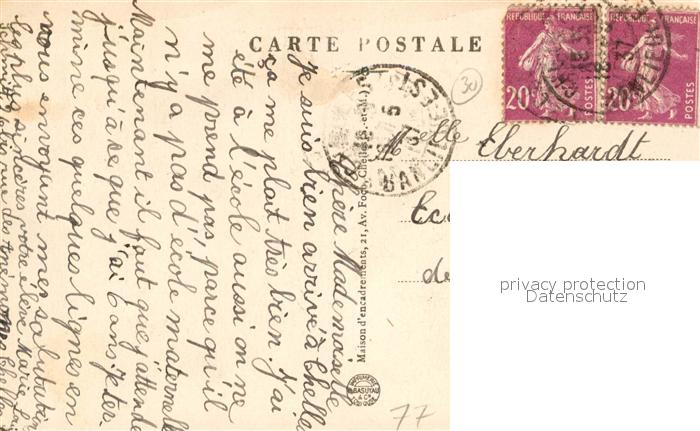 CARTE POSTALE
RÉPUBLIQUE FRANÇAISE
20c
POSTES
RÉPUBLIQUE FRANÇAISE
20c
POSTES
30
Melle Eberhardt
de
privacy protection
Datenschutz
Maison d'encadrements, 21, Av. Foch, Chelles (S.-et-M.)
77
Chère Mademoiselle
Je suis bien arrivé à Chelles
ça me plaît très bien. J'ai
été à l'école aussi on ne
me prend pas, parce qu'il
n'y a pas d'école maternelle
Maintenant il faut que j'attende
jusqu'à ce que j'ai 6 ans
mine ces quelques lignes en
vous envoyant mes salutations
les plus sincères votre élève Marie
rue des